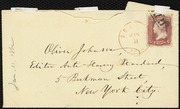 Oliver Johnson,
Editor Anti-Slavery Standard,
5 Beekman Street
New York City.